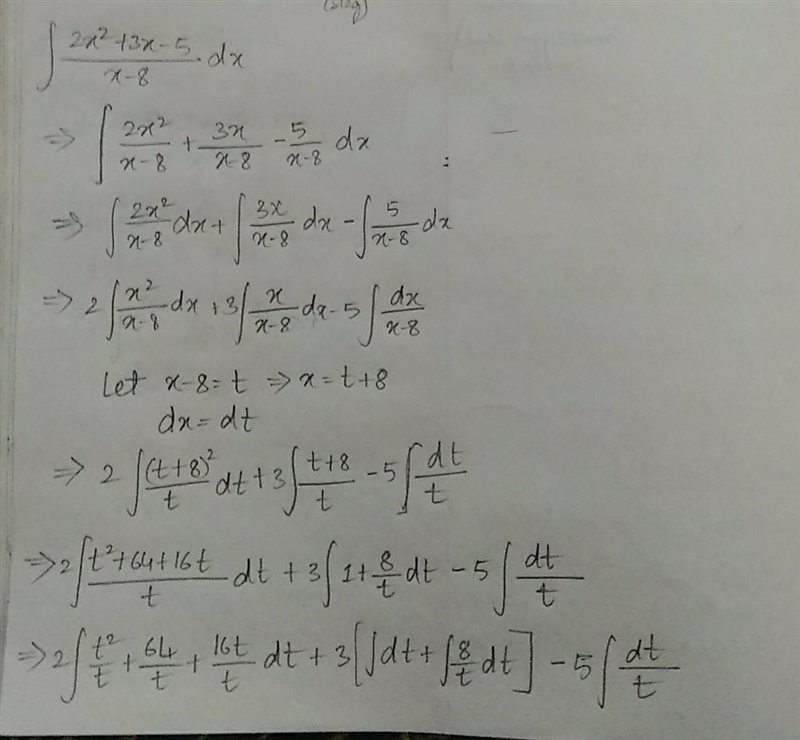 ∫ (2x² + 3x - 5)/(x-8) · dx
⇒ ∫ 2x²/(x-8) + 3x/(x-8) - 5/(x-8) dx
⇒ ∫ 2x²/(x-8) dx + ∫ 3x/(x-8) dx - ∫ 5/(x-8) dx
⇒ 2 ∫ x²/(x-8) dx + 3 ∫ x/(x-8) dx - 5 ∫ dx/(x-8)
Let x-8 = t ⇒ x = t+8
dx = dt
⇒ 2 ∫ (t+8)²/t dt + 3 ∫ (t+8)/t - 5 ∫ dt/t
⇒ 2 ∫ (t² + 64 + 16t)/t dt + 3 ∫ 1 + 8/t dt - 5 ∫ dt/t
⇒ 2 ∫ t²/t + 64/t + 16t/t dt + 3 [∫ dt + ∫ 8/t dt] - 5 ∫ dt/t